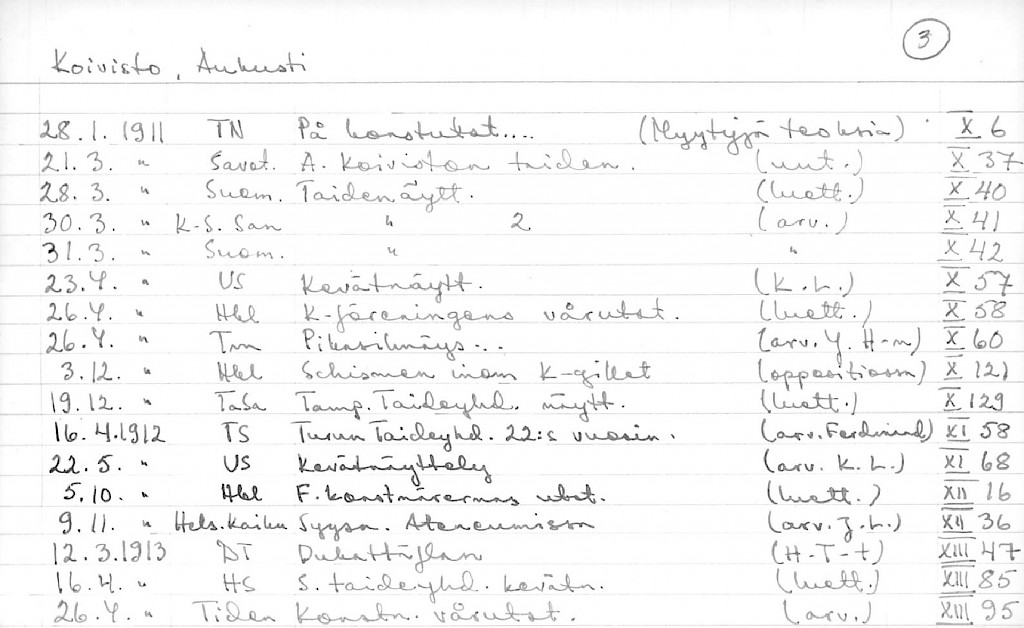 3
Koivisto, Aukusti
28.1.1911 TN På konstutst.... (Myytyjä teoksia) X 6
21.3. " Savot. A. Koiviston taiden. (uut.) X 37
28.3. " Suom. Taidenäytt. (luett.) X 40
30.3. " K-S. San " 2 (arv.) X 41
31.3. " Suom. " " X 42
23.4. " US Kevätnäytt. (K.L.) X 57
26.4. " Hbl K-föreningens vårutst. (luett.) X 58
26.4. " Tm Pikasilmäys... (arv. Y. H-n) X 60
3.12. " Hbl Schismen inom K-gillet (oppositiossa) X 121
19.12. " TaSa Tamp. Taideyhd. näytt. (luett.) X 129
16.4.1912 TS Turun Taideyhd. 22:s vuosin. (arv. Ferdinand) XI 58
22.5. " US Kevätnäyttely (arv. K.L.) XI 68
5.10. " Hbl F. konstnärernas utst. (luett.) XII 16
9.11. " Hels. Kaiku Syysn. Ateneumissa (arv. J.L.) XII 36
12.3.1913 DT Dukattäflan (H-T-t) XIII 47
16.4. " HS S. taideyhd. kevätn. (luett.) XIII 85
26.4. " Tiden Konstn. vårutst. (arv.) XIII 95